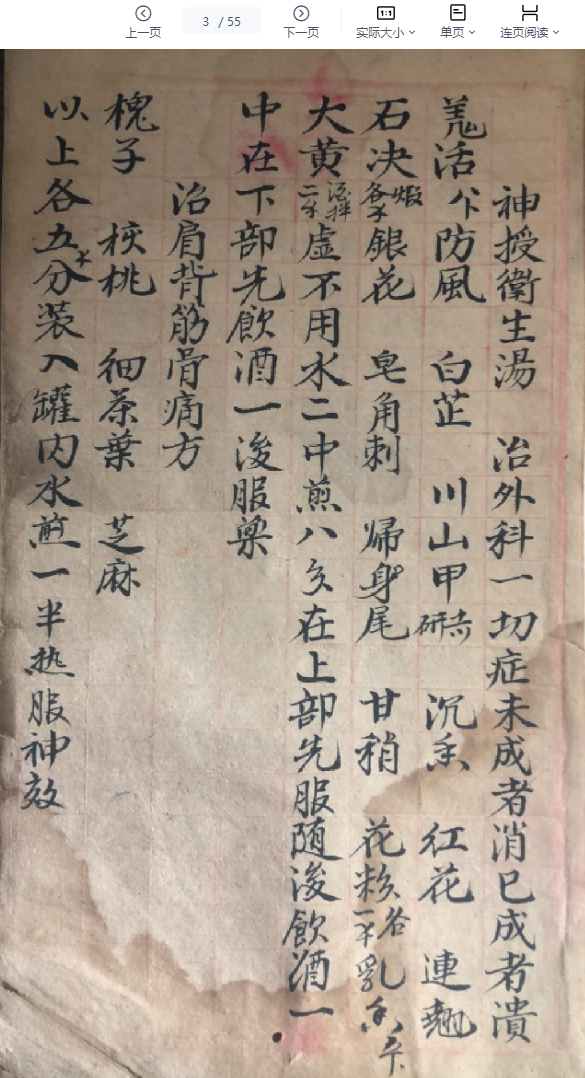 上一页
3 / 55
下一页
1:1
实际大小
单页
连页阅读
神授衛生湯 治外科一切症未成者消已成者潰
羗活 防風 白芷 川山甲 沉香 红花 連翹
石决 銀花 皂角刺 歸身尾 甘稍 花粉 乳香
大黄 虛不用水二中煎八分在上部先服随後飲酒一
中在下部先飲酒一後服藥
治肩背筋骨痛方
槐子 核桃 细茶葉 芝麻
以上各五分装入罐内水煎一半热服神效